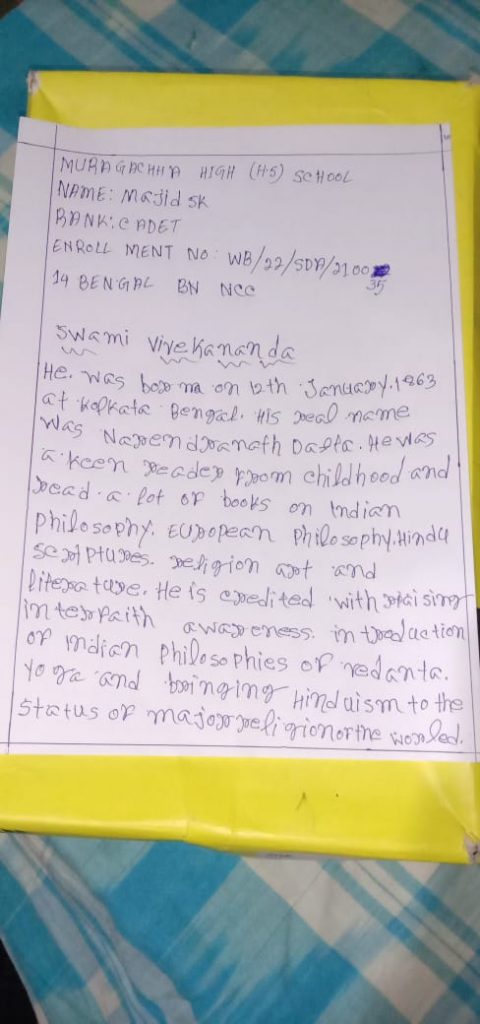 MURAGACHHA HIGH (HS) SCHOOL
NAME: Majid SK
RANK: CADET
ENROLL MENT NO: WB/22/SDA/2100
35
14 BENGAL BN NCC
Swami Vivekananda
He. was born on 12th January.1863
at Kolkata Bengal. His real name
was Narendranath Datta. He was
a keen reader from childhood and
read a lot of books on Indian
Philosophy. European Philosophy. Hindu
scriptures. religion art and
literature. He is credited with raising
interfaith awareness. introduction
of Indian Philosophies of vedanta.
Yoga and bringing Hinduism to the
status of major religion of theworled.